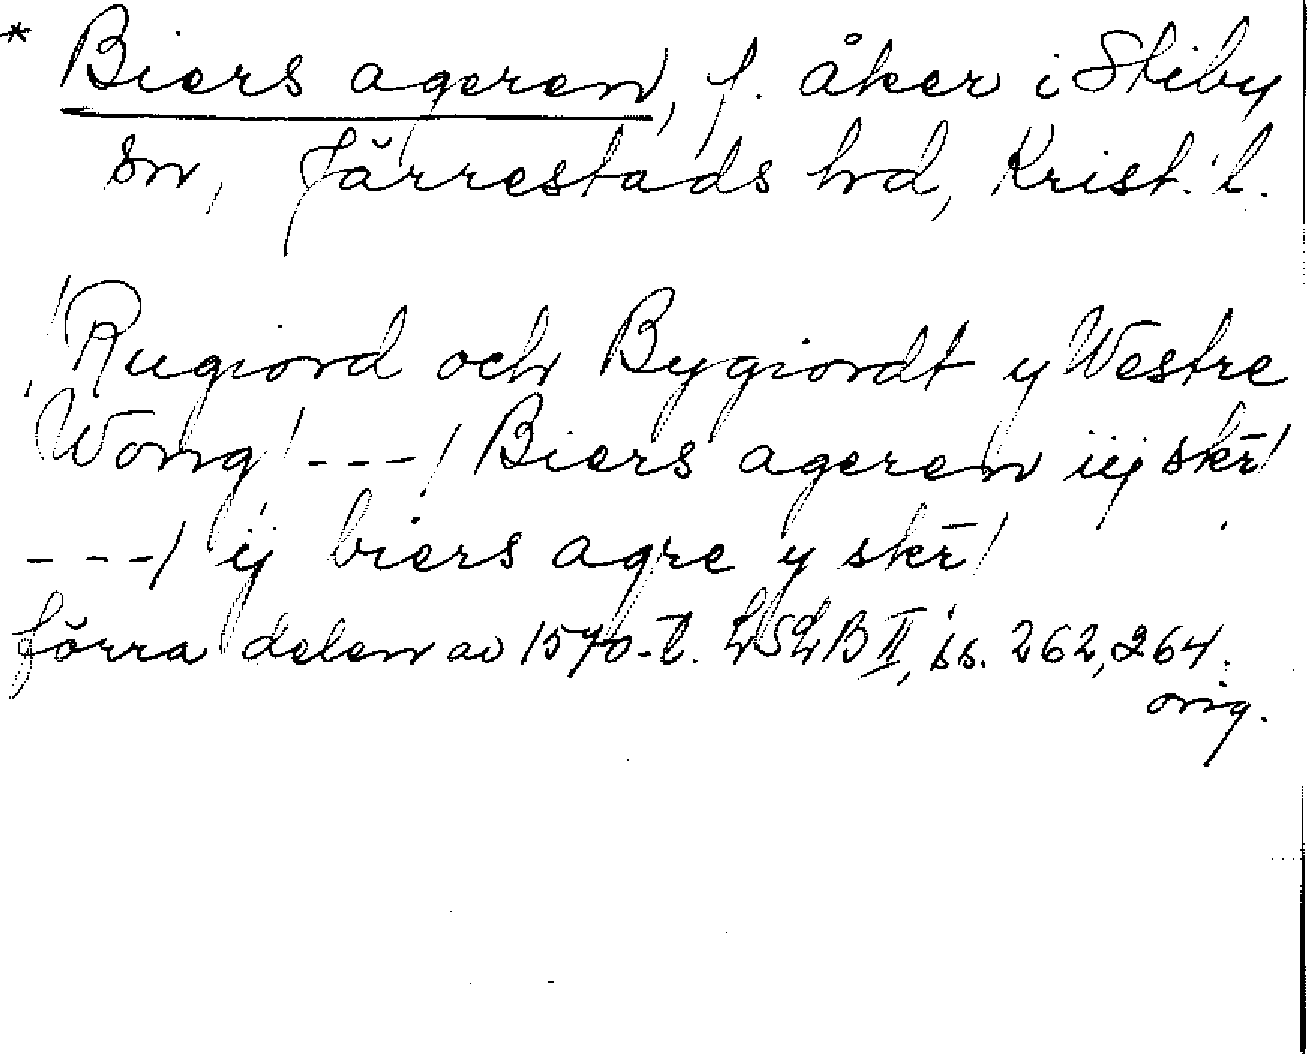 * Biers ageren, f. åker i Stiby
sn, Järrestads hd, Krist. l.
/Rugiord och Bygiordt y Westre
Wong/ ---/ Biers ageren iij skr̄/
---/ ij biers agre y skr̄/
förra delen av 1570-t. LSLB II, ss. 262, 264.
orig.